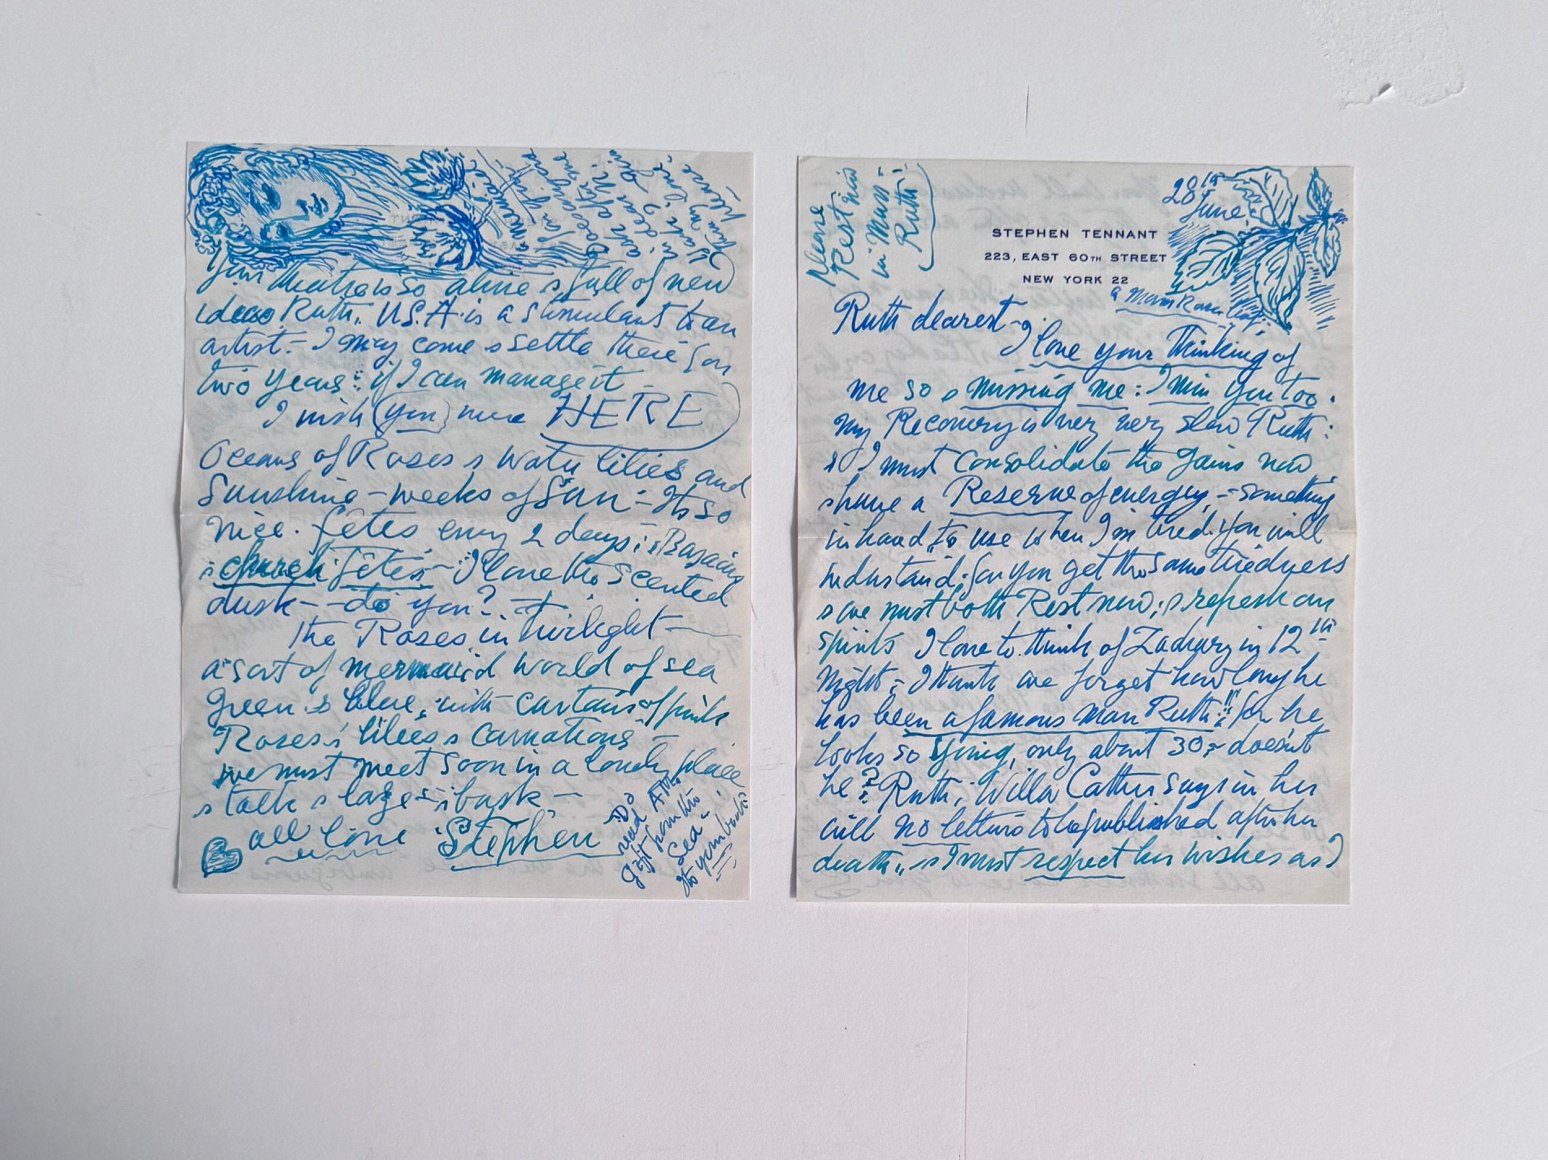 Please
Rest
in
Ruth!
28th
June.
STEPHEN TENNANT
223, EAST 60TH STREET
NEW YORK 22
a Moss Rose
Ruth dearest –
I love your Thinking of
me so & missing me: I miss you too.
my Recovery is very very slow Ruth:
& I must consolidate the gains now
& have a Reserve of energy, – something
in hand, to use when I'm tired. you will
understand; for you get the same tiredness
& we must both Rest now; & refresh our
spirits I love to think of Zachary in 12th
Night – I think we forget how long he
has been a famous man Ruth!! for he
looks so young, only about 30 – doesn't
he? Ruth, Willa Cather says in her
will no letters to be published after her
death, & I must respect her wishes as I
Your theatre is so alive & full of new
ideas Ruth. U.S.A is a stimulant to an
artist. – I may come & settle there for
two years: if I can manage it –
I wish (you) were HERE
Oceans of Roses & Water lilies and
Sunshine – weeks of Sun – Its so
nice. fêtes every 2 days; Bazaars
& church fêtes – I love the scented
dusk – do you? –
The Roses in twilight –
a sort of mermaid World of sea
green & blue, with curtains of pink
Roses & lilies & carnations –
we must meet soon in a lovely place
& talk & laze & bask –
all love Stephen
Do
read A.M.'s
gift from the
Sea –
Its yum